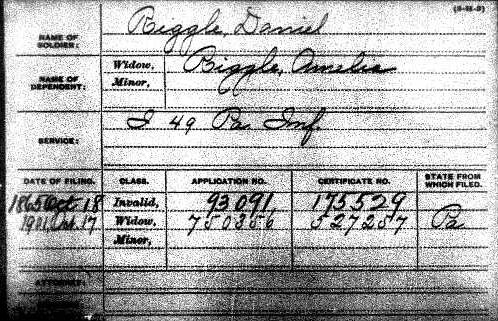 (3-11-3)
NAME OF SOLDIER: Biggle, Daniel
NAME OF DEPENDENT: Widow, Biggle, Amelia
Minor,
SERVICE: I 49 Pa Inf.
DATE OF FILING. CLASS. APPLICATION NO. CERTIFICATE NO. STATE FROM WHICH FILED.
1865 Oct 18 Invalid, 93091 175529
1901, 17 Widow, 750356 527257 Pa
Minor,
ATTORNEY: